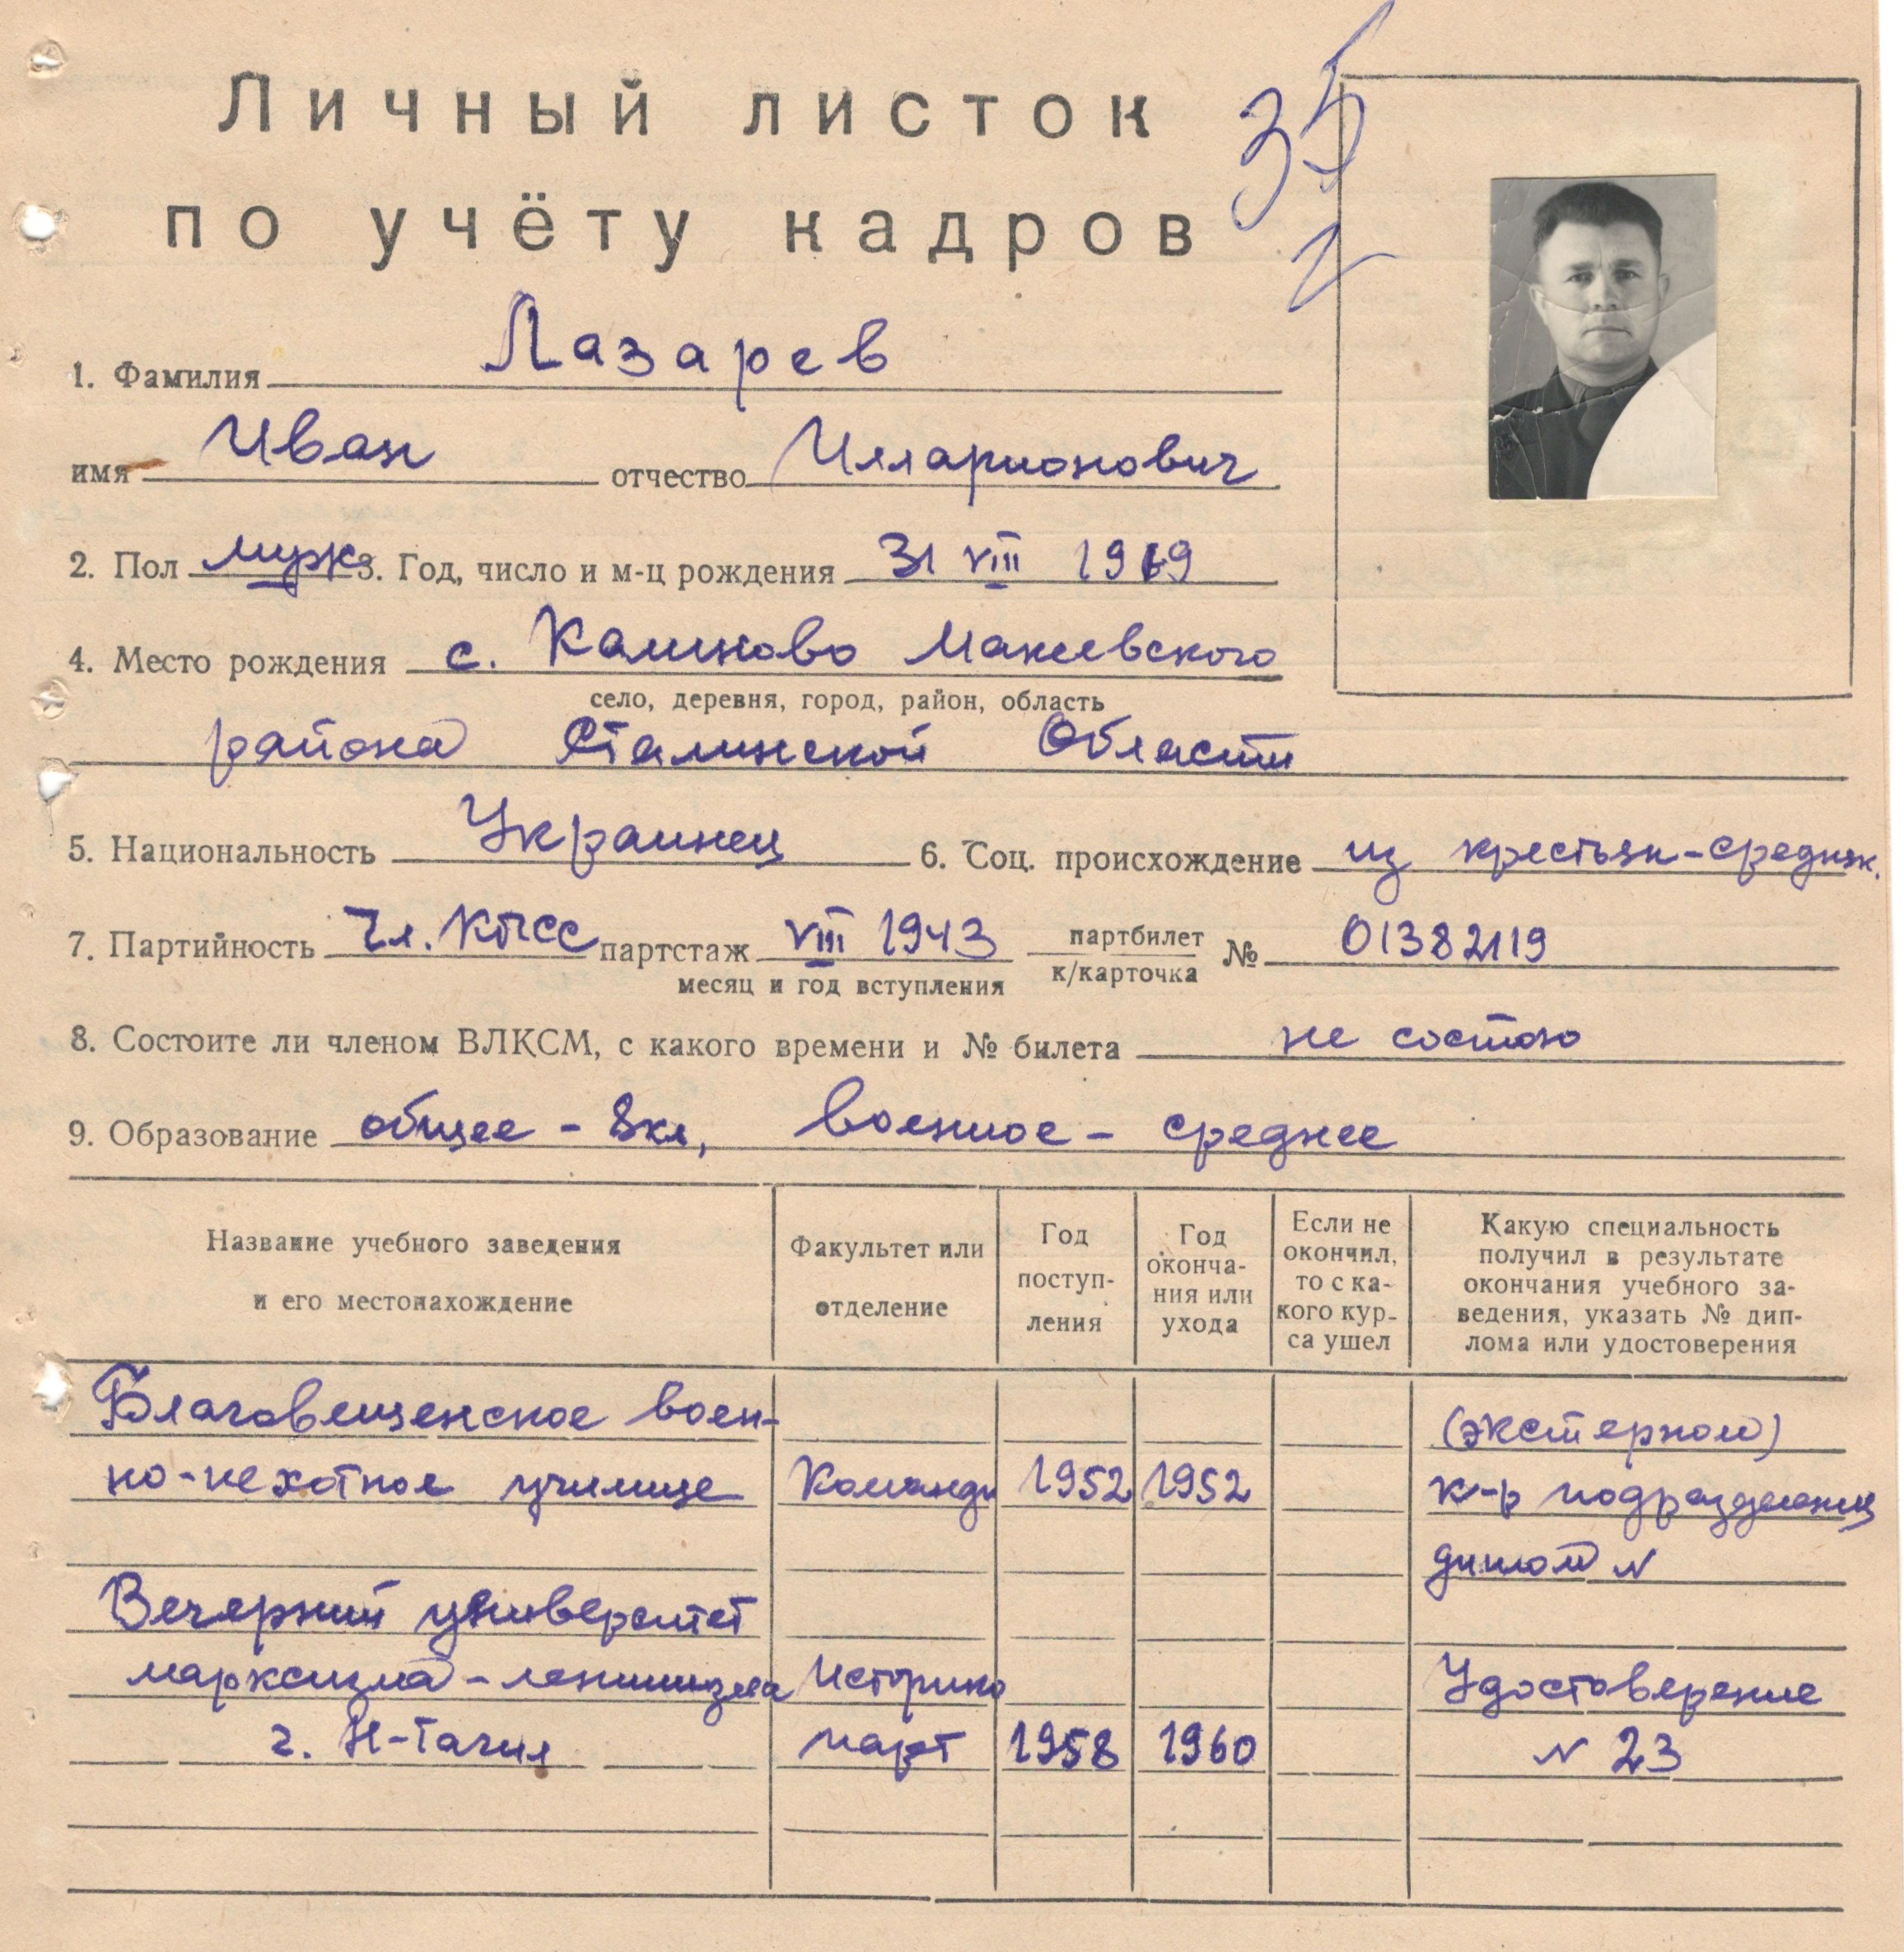 Личный листок
по учёту кадров
35
2
1. Фамилия Лазарев
имя Иван отчество Илларионович
2. Пол муж 3. Год, число и м-ц рождения 31 VIII 1919
4. Место рождения с. Калиново Макеевского
село, деревня, город, район, область
района Сталинской Области
5. Национальность Украинец 6. Соц. происхождение из крестьян-средняк.
7. Партийность Чл. КПСС партстаж VIII 1943 партбилет № 01382119
месяц и год вступления к/карточка
8. Состоите ли членом ВЛКСМ, с какого времени и № билета не состою
9. Образование общее - 8кл, военное - среднее
Название учебного заведения
и его местонахождение
Факультет или
отделение
Год
поступ-
ления
Год
оконча-
ния или
ухода
Если не
окончил,
то с ка-
кого кур-
са ушел
Какую специальность
получил в результате
окончания учебного за-
ведения, указать № дип-
лома или удостоверения
Благовещенское воен- (экстерном)
но-пехотное училище Командн 1952 1952 к-р подразделениц
диплом N
Вечерний университет
марксизма-ленинизма Историко Удостоверение
г. Н-Тагил парт 1958 1960 N 23